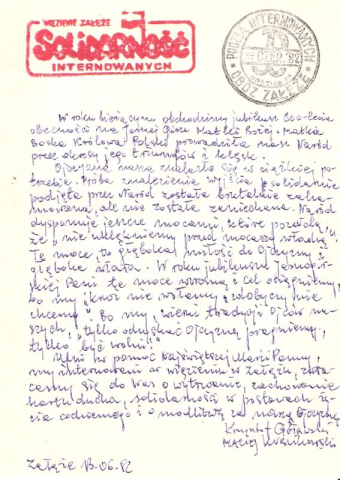 WIĘZIENIE ZAŁĘŻE
SOLIDARNOŚĆ
INTERNOWANYCH
POCZTA INTERNOWANYCH
CZER. '82
OBÓZ ZAŁĘŻE
W roku bieżącym obchodzimy jubileusz 600-lecia
obecności na Jasnej Górze Matki Bożej. Matka
Boska Królowa Polski prowadziła nasz Naród
przez okresy jego triumfów i klęsk.
Ojczyzna nasza znalazła się w ciężkiej po-
trzebie. Próba znalezienia wyjścia solidarnie
podjęta przez Naród została brutalnie zaha-
mowana, ale nie została zaniechana. Naród
dysponuje jeszcze mocami, które pozwolą
że nie ulękniemy przed mocarzy władzą
Te moce, to głęboka miłość do Ojczyzny i
głęboka wiara. W roku jubileuszu Jasnogór-
skiej Pani te moce wzrosną i cel osiągniemy
bo my "knor nie włamy, zdobyczy nie
chcemy". Bo my, wierni tradycji Ojców na-
szych, "tylko odzyskać Ojczyznę pragniemy,
tylko być wolni!"
Ufni w pomoc Najświętszej Marii Panny,
my internowani w więzieniu w Załężu, zwra-
camy się do Was o wytrwanie, zachowanie
hartu ducha, solidarności w postawach ży-
cia codziennego i o modlitwę za naszą Ojczyznę
Krzysztof
Maciej
Załęże 13.06.82